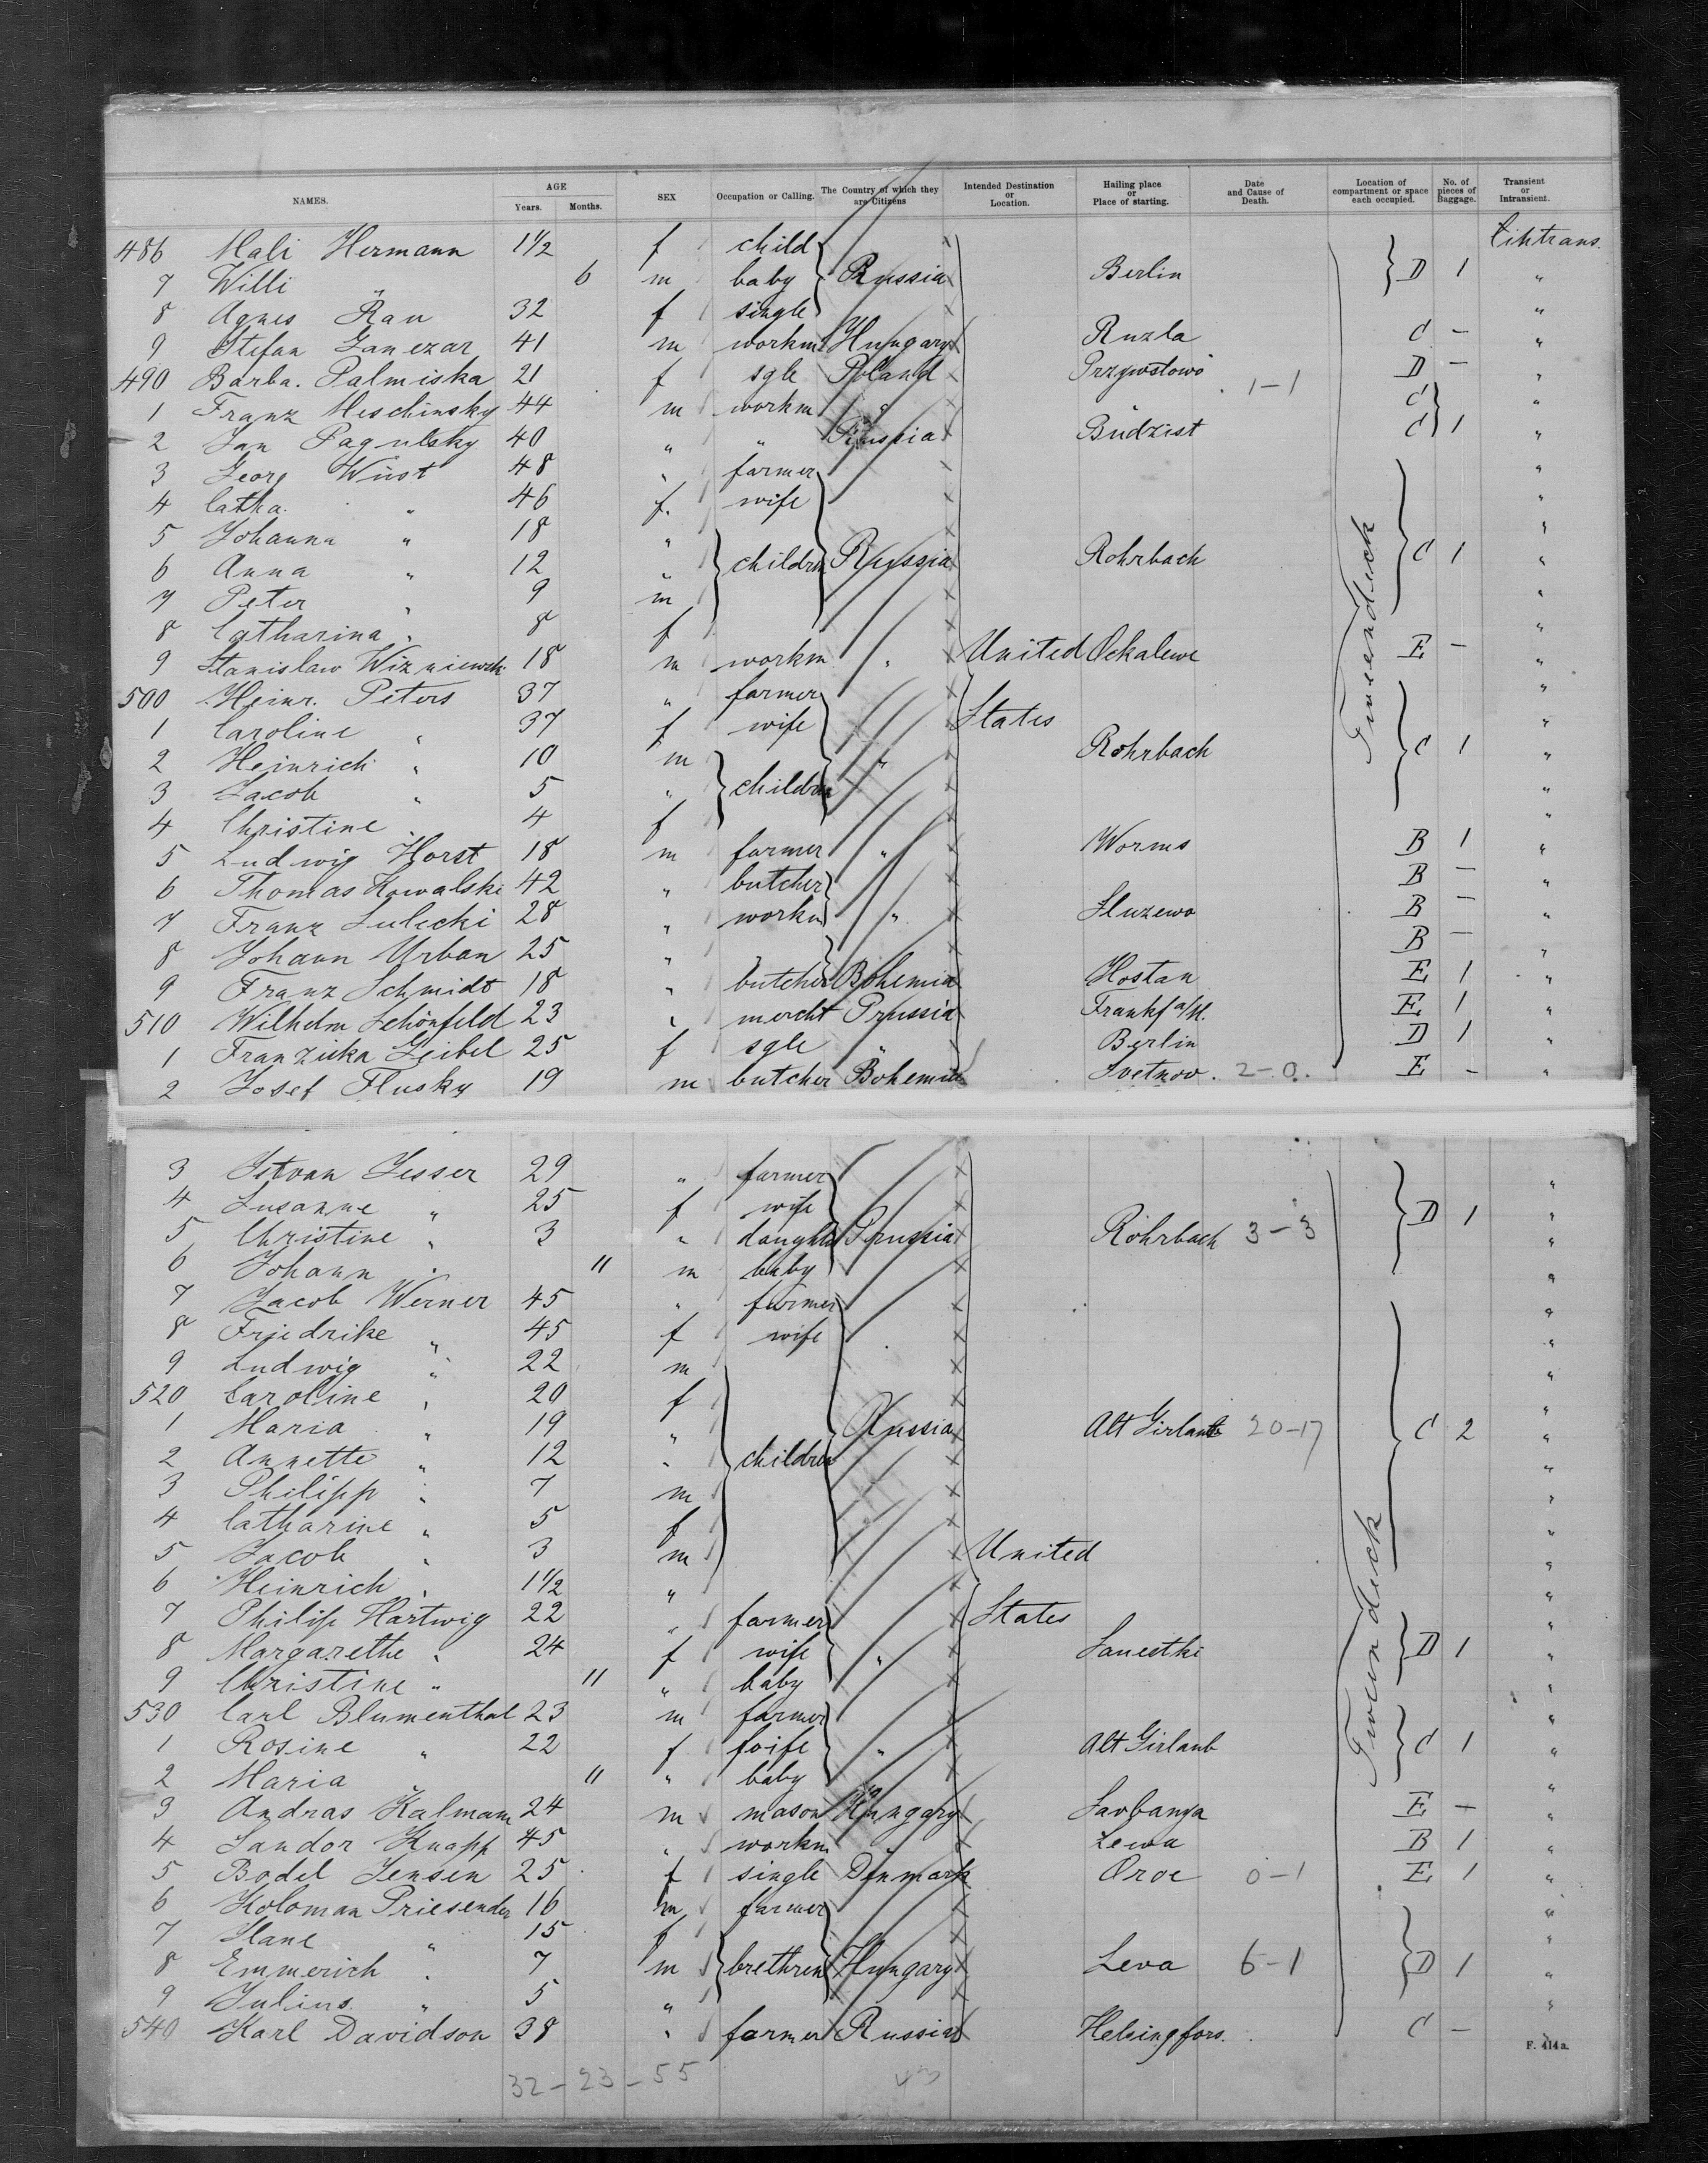 NAMES. AGE Years. Months. SEX Occupation or Calling. The Country of which they are Citizens Intended Destination or Location. Hailing place or Place of starting. Date and Cause of Death. Location of compartment or space each occupied. No. of pieces of Baggage. Transient or Intransient.
486 Mali Hermann 1½ f child
7 Willi " 6 m baby Russia Berlin D 1 "
8 Agnes Rau 32 f single "
9 Stefan 41 m workm Hungary Ruzla C – "
490 Barba. Palmiska 21 f sgle Poland D – "
1 Franz Meschinsky 44 m workm " 1–1 C "
2 Jan Pagulsky 40 " " Russia Budzist C 1 "
3 Georg Wüst 48 " farmer "
4 Catha. " 46 f. wife "
5 Johanna " 18 " "
6 Anna " 12 " children Russia Rohrbach C 1 "
7 Peter " 9 m "
8 Catharina " 8 f "
9 Stanislaw Wizniewsk 18 m workm " United Ockalewe E – "
500 Heinr. Peters 37 " farmer "
1 Caroline " 37 f wife States "
2 Heinrich " 10 m " Rohrbach C 1 "
3 Jacob " 5 " children "
4 Christine " 4 f "
5 Ludwig Horst 18 m farmer " Worms B 1 "
6 Thomas Kowalski 42 " butcher B – "
7 Franz Sulecki 28 " workm " Sluzewo B – "
8 Johann Urban 25 " " B – "
9 Franz Schmidt 18 " butcher Bohemia Hostan E 1 "
510 Wilhelm Schönfeld 23 " mercht Prussia Frankf a/M. E 1 "
1 Franziska Geibel 25 f sgle " Berlin D 1 "
2 Josef Flusky 19 m butcher Bohemia Svetnov. 2–0. E – "
Tweendeck
3 Istvan Jesser 29 " farmer "
4 Susanne " 25 f wife D 1 "
5 Christine " 3 " daughter Russia Rohrbach 3–3 "
6 Johann " 11 m baby "
7 Jacob Werner 45 " farmer "
8 Friedrike " 45 f wife "
9 Ludwig " 22 m "
520 Caroline " 20 f "
1 Maria " 19 " Russia 20–17 C 2 "
2 Annette " 12 " children "
3 Philipp " 7 m "
4 Catharine " 5 f "
5 Jacob " 3 m United "
6 Heinrich " 1½ " "
7 Philip Hartwig 22 " farmer States "
8 Margarethe " 24 f wife " D 1 "
9 Christine " 11 " baby "
530 Carl Blumenthal 23 m farmer "
1 Rosine " 22 f wife " C 1 "
2 Maria " 11 " baby "
3 Andras Kalmann 24 m mason Hungary Savbanya E – "
4 Sandor Knapp 45 " workm " Lewa B 1 "
5 Bodel Jensen 25 f single Denmark Oroe 0–1 E 1 "
6 Koloman Priesender 16 m farmer "
7 Hane " 15 f "
8 Emmerich " 7 m brethren Hungary Leva 6–1 D 1 "
9 Julius " 5 " "
540 Karl Davidson 38 " farmer Russia Helsingfors. C – "
Tweendeck
F. 414a.
32–23–55